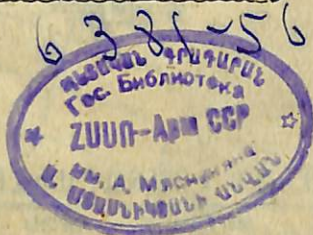 6381-56
ՊԵՏԱԿԱՆ ԳՐԱԴԱՐԱՆ
Гос. Библиотека
ՀՍՍՌ-Арм ССР
им. А. Мясникяна
Ա. ՄՅԱՍՆԻԿՅԱՆԻ ԱՆՎԱՆ